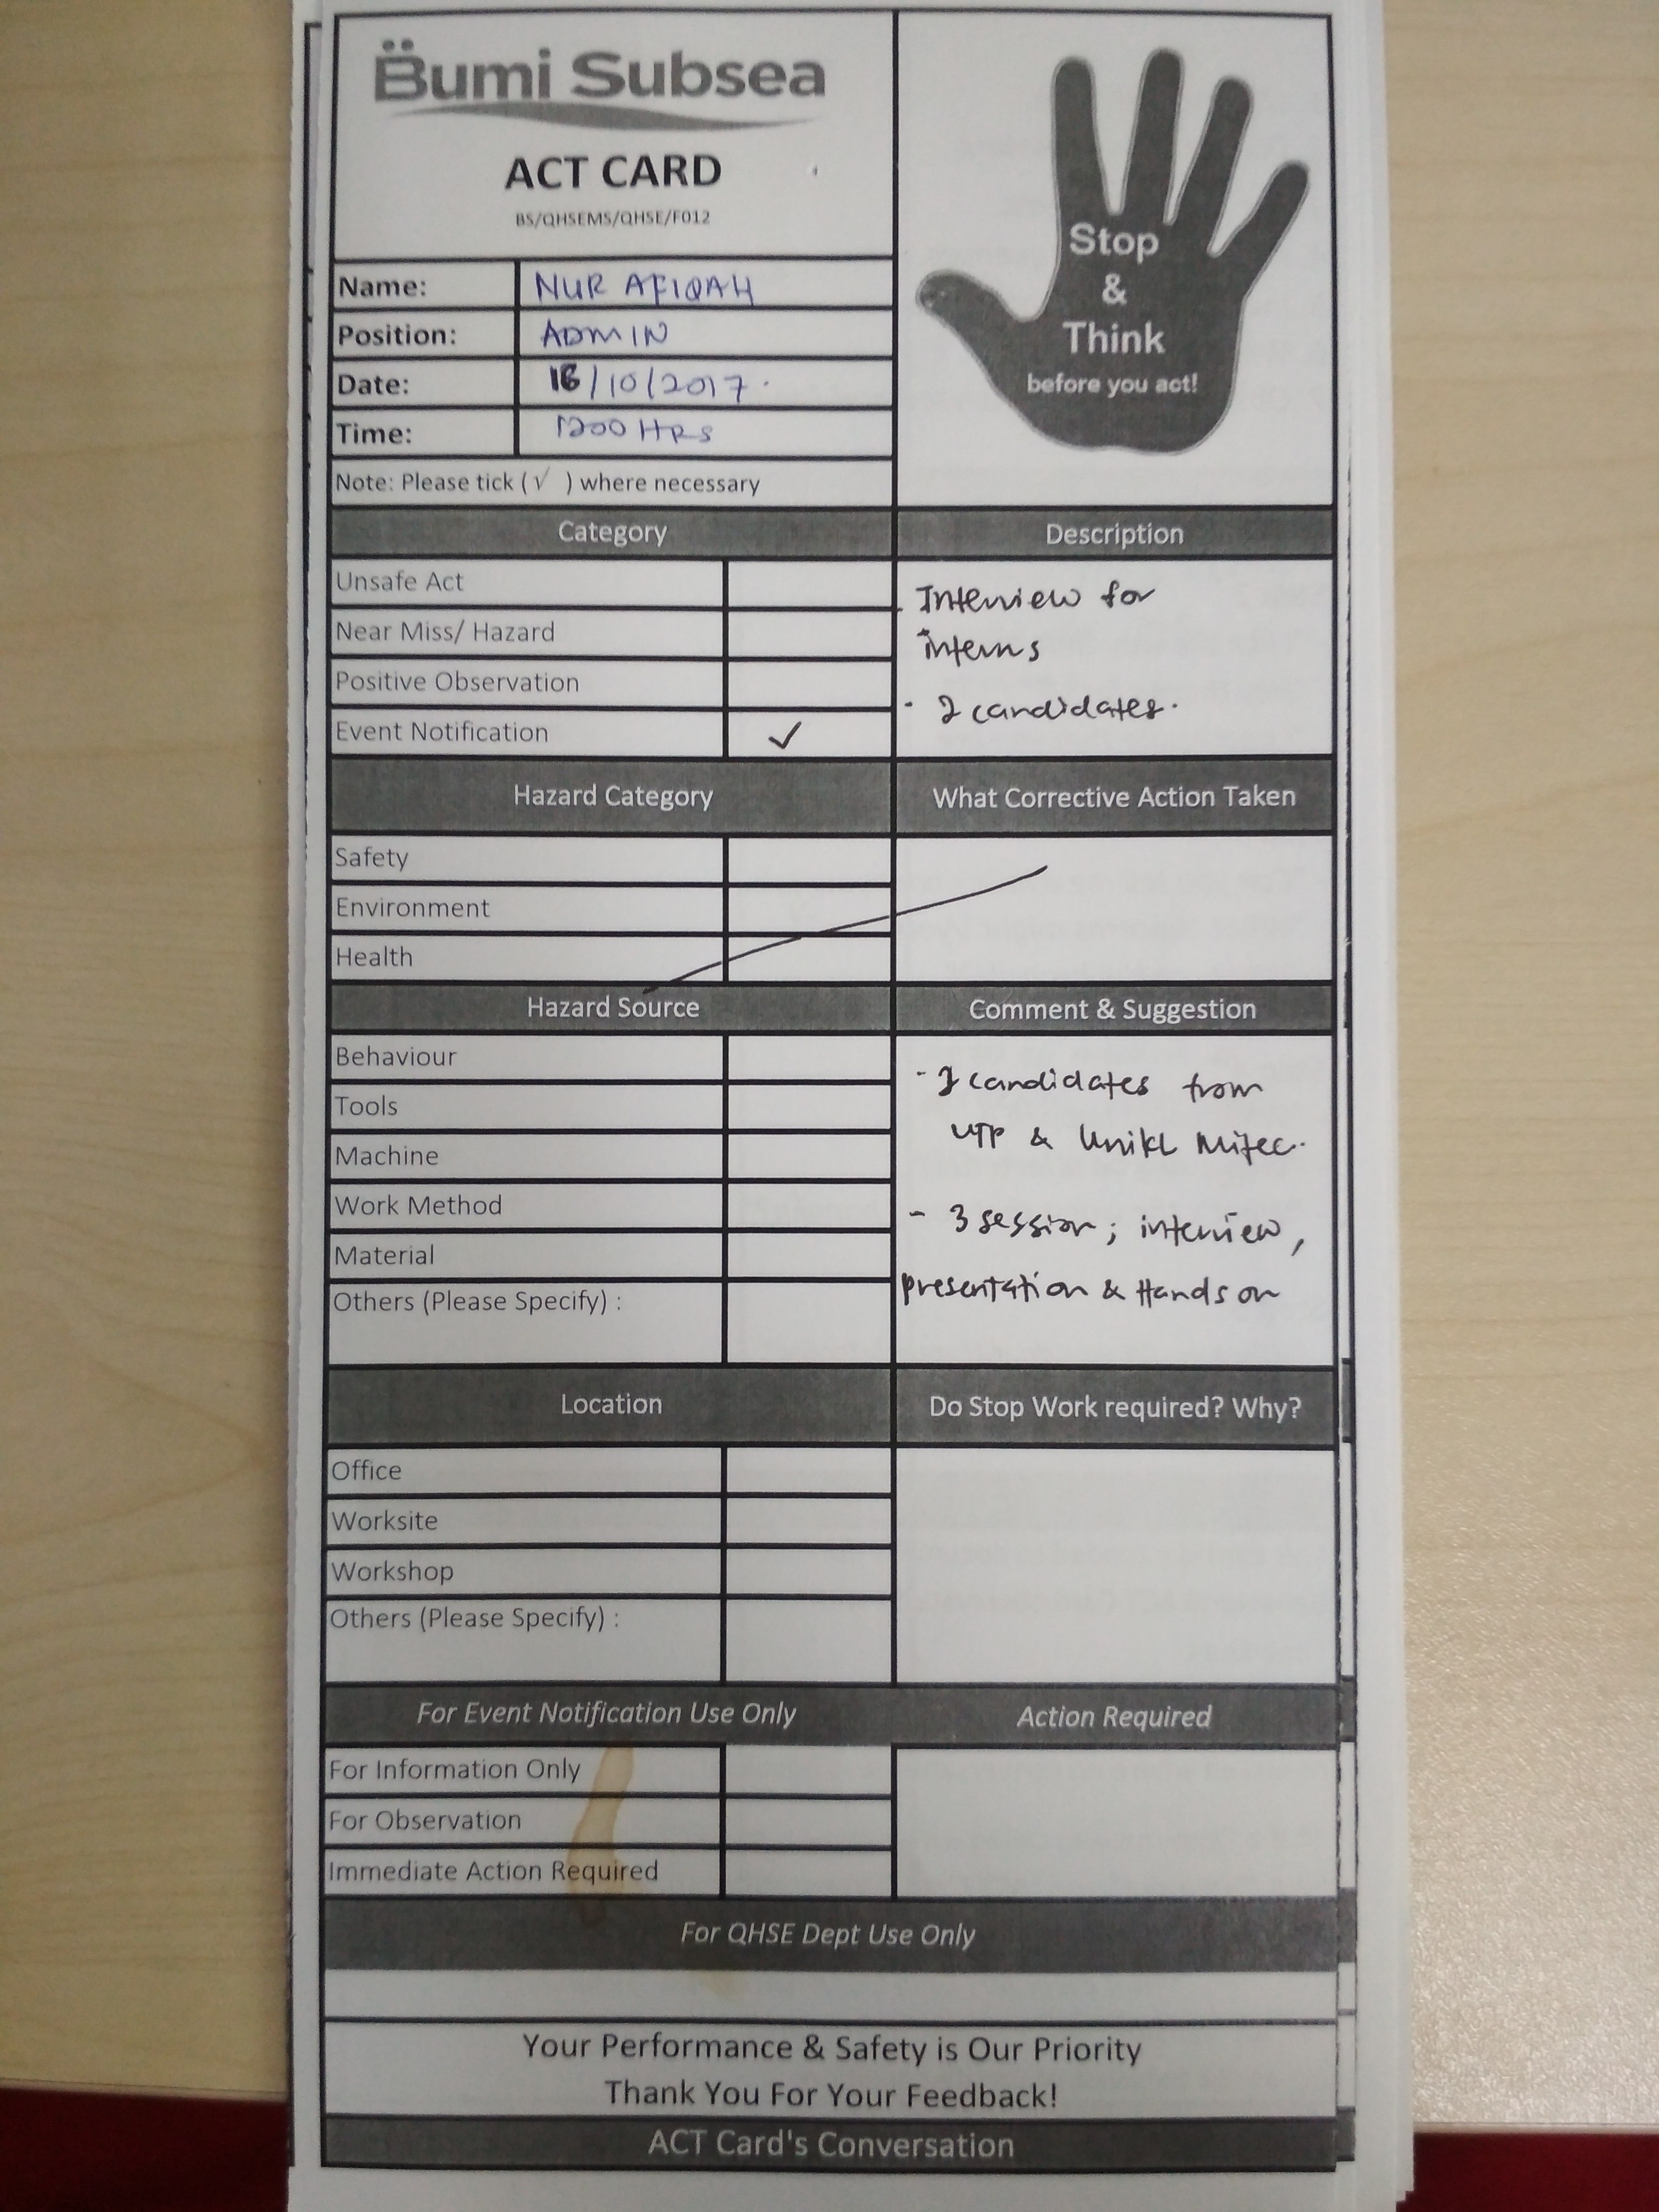 Bumi Subsea
ACT CARD
BS/QHSEMS/QHSE/F012
Stop
&
Think
before you act!
Name: NUR AFIQAH
Position: ADMIN
Date: /10/2017.
Time: 1200 HRS
Note: Please tick ( √ ) where necessary
Category
Unsafe Act
Near Miss/ Hazard
Positive Observation
Event Notification ✓
Description
Interview for
interns
- 2 candidates.
Hazard Category
Safety
Environment
Health
What Corrective Action Taken
Hazard Source
Behaviour
Tools
Machine
Work Method
Material
Others (Please Specify) :
Comment & Suggestion
- 2 candidates from
UTP & Unikl Mitec.
- 3 session; interview,
presentation & Hands on
Location
Office
Worksite
Workshop
Others (Please Specify) :
Do Stop Work required? Why?
For Event Notification Use Only
For Information Only
For Observation
Immediate Action Required
Action Required
For QHSE Dept Use Only
Your Performance & Safety is Our Priority
Thank You For Your Feedback!
ACT Card's Conversation